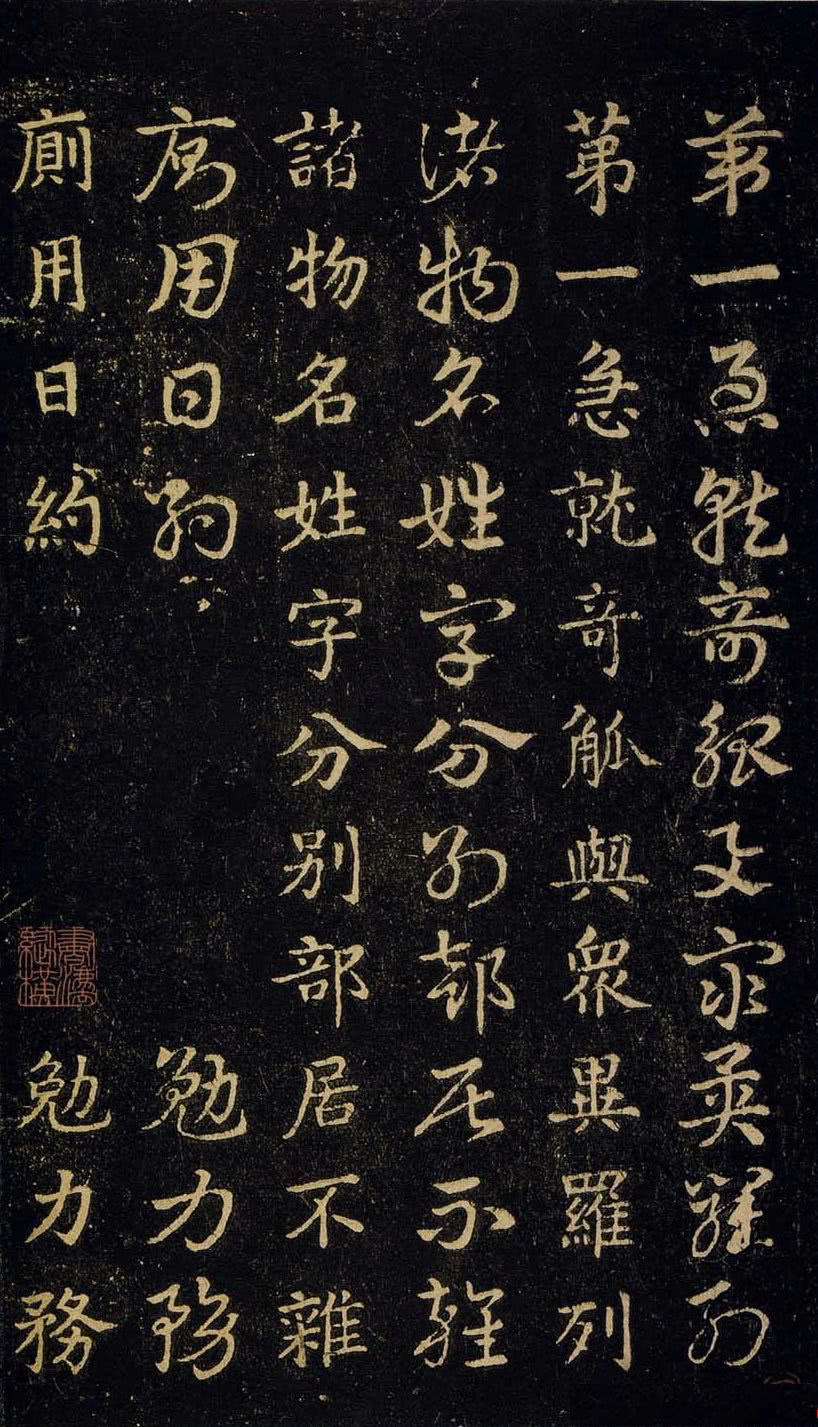 苐一急就奇觚与衆異羅列
苐一急就奇觚與衆異羅列
諸物名姓字分别部居不雜
諸物名姓字分别部居不雜
廁用日約 勉力務
廁用日約 勉力務